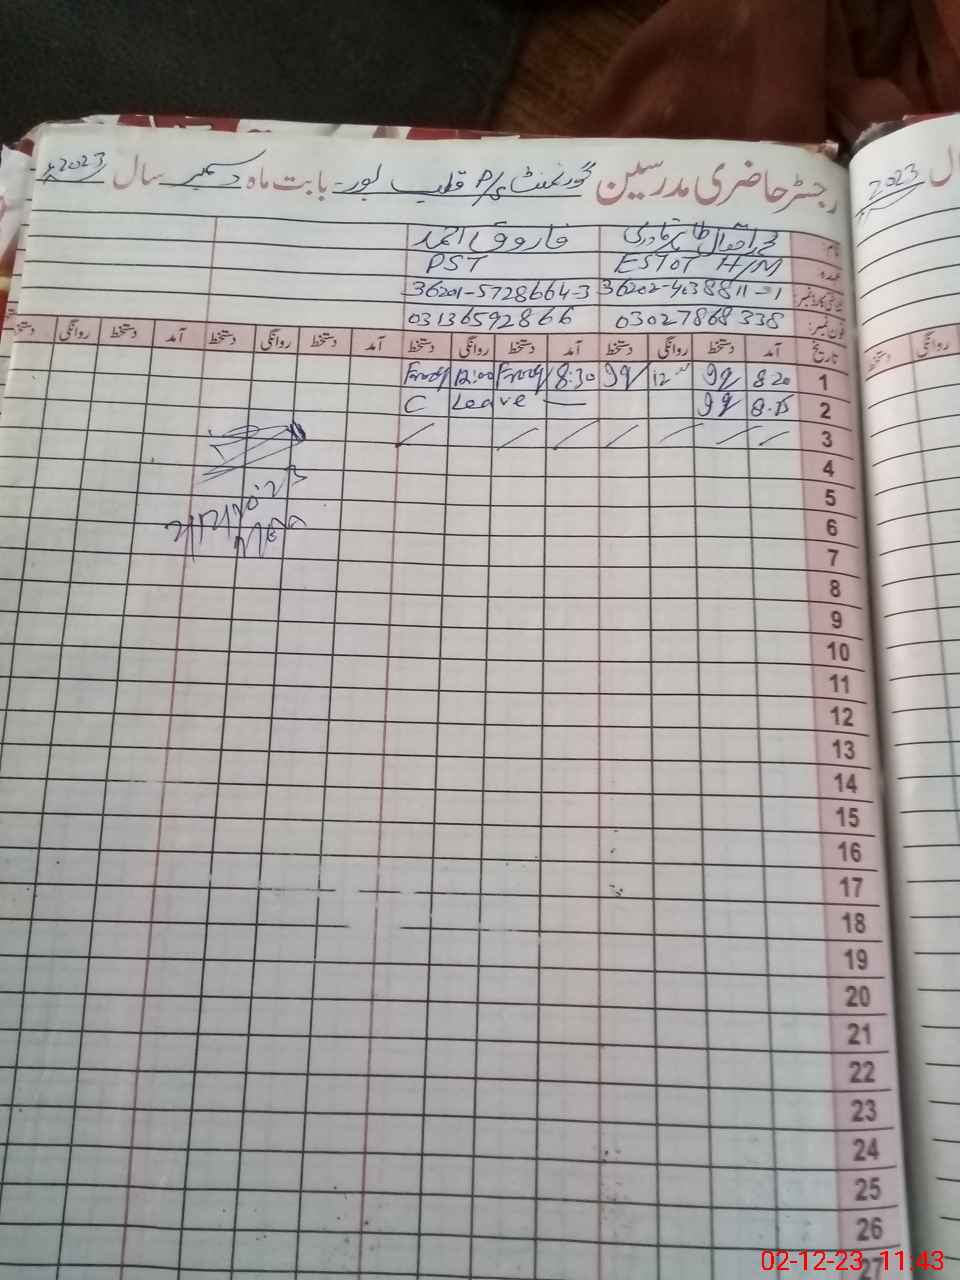 رجسٹر حاضری مدرسین گورنمنٹ P/S قطب پور۔ بابت ماہ دسمبر سال 2023ء
نام: قادری فاروق احمد
عہدہ ESTOT H/M PST
36201-5728664-3
فون نمبر: 03027868338 03136592866
تاریخ آمد دستخط روانگی دستخط آمد دستخط روانگی دستخط آمد دستخط روانگی دستخط آمد دستخط روانگی دستخط
1 8:20 12 8:30 12:00
2 8:15 C Leave —
3
4
5
6
7
8
9
10
11
12
13
14
15
16
17
18
19
20
21
22
23
24
25
26
27
2023ء
روانگی دستخط
02-12-23 11:43